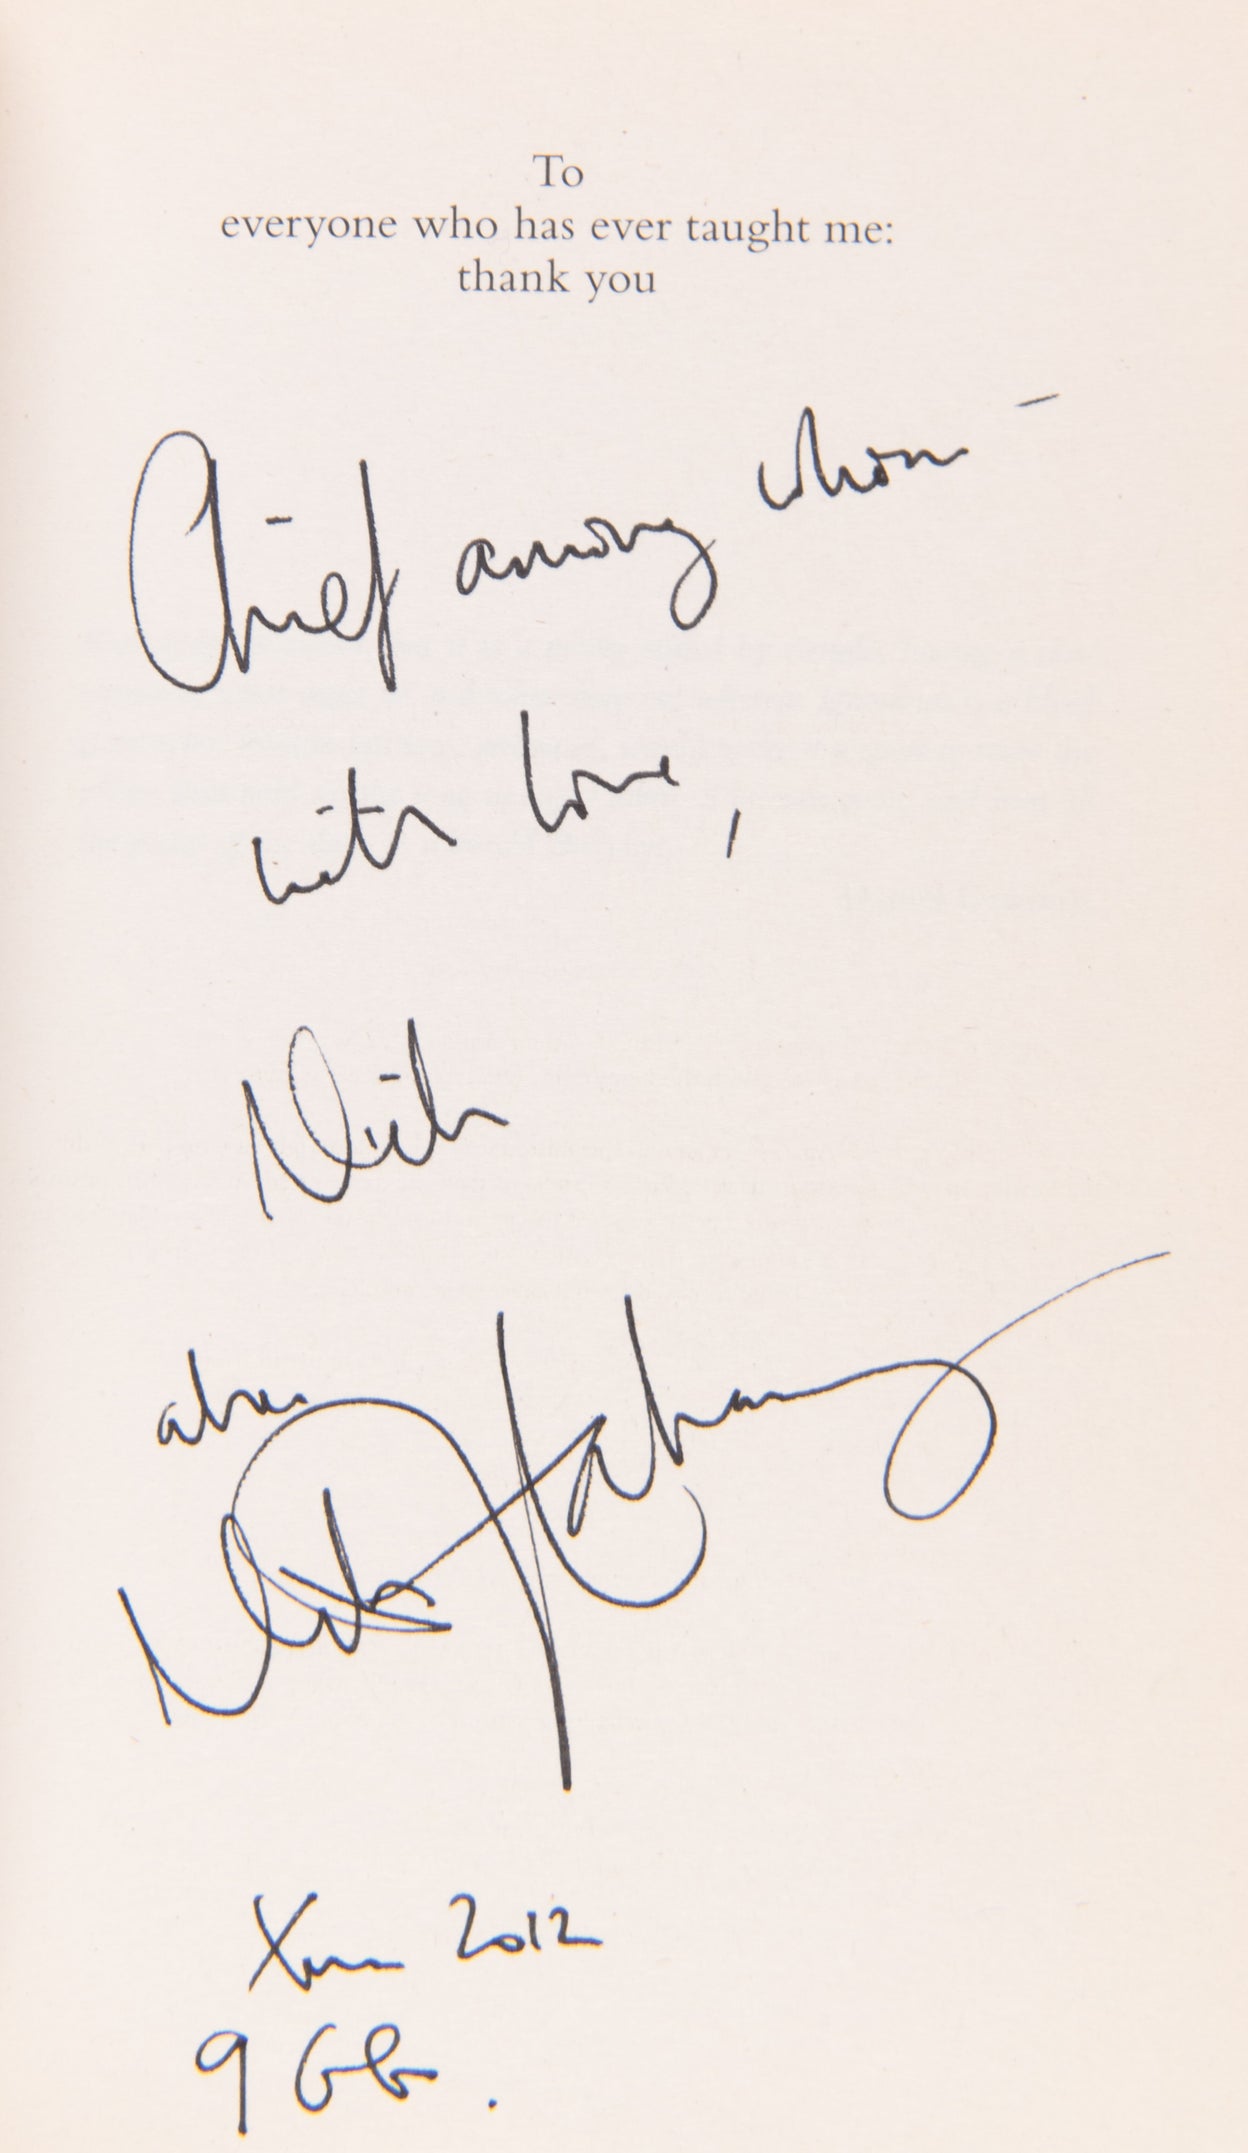 To
everyone who has ever taught me:
thank you
Chief among whom –
with love,
Nick
alias
Nick
Xmas 2012
9 GG.